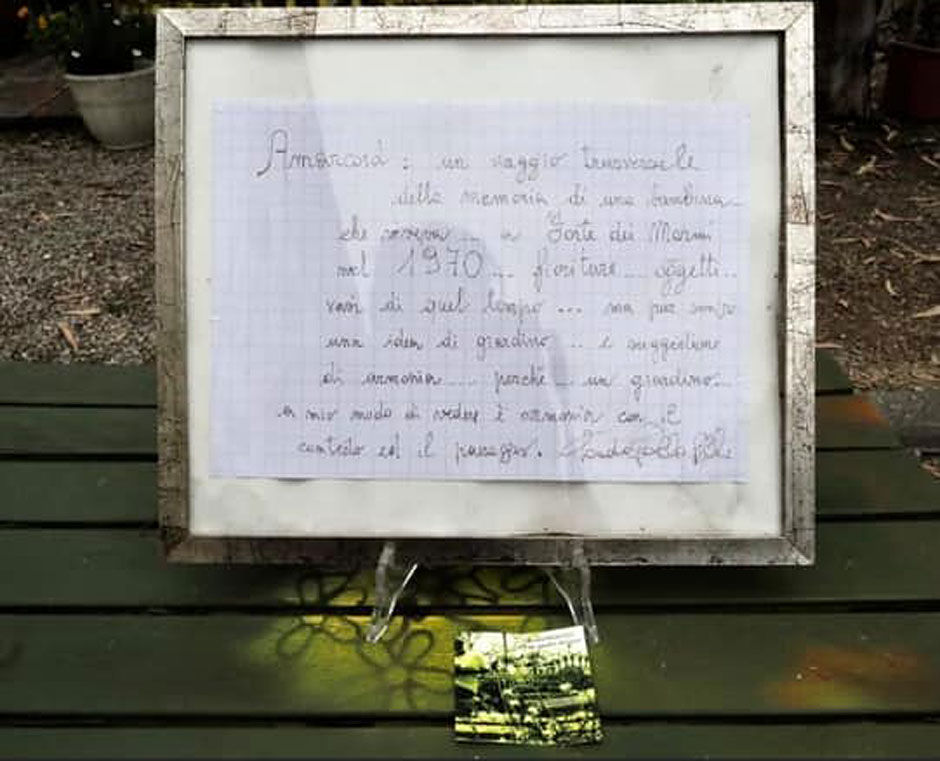 Amarcord : un viaggio trasversale
della memoria di una bambina...
che veniva .... a Forte dei Marmi
nel 1970 .... fioriture .... oggetti...
vari di quel tempo ... ma pur sempre
una idea di giardino ... e suggestione
di armonia .... perché ... un giardino...
a mio modo di vedere è armonia con il
contesto ed il paesaggio.